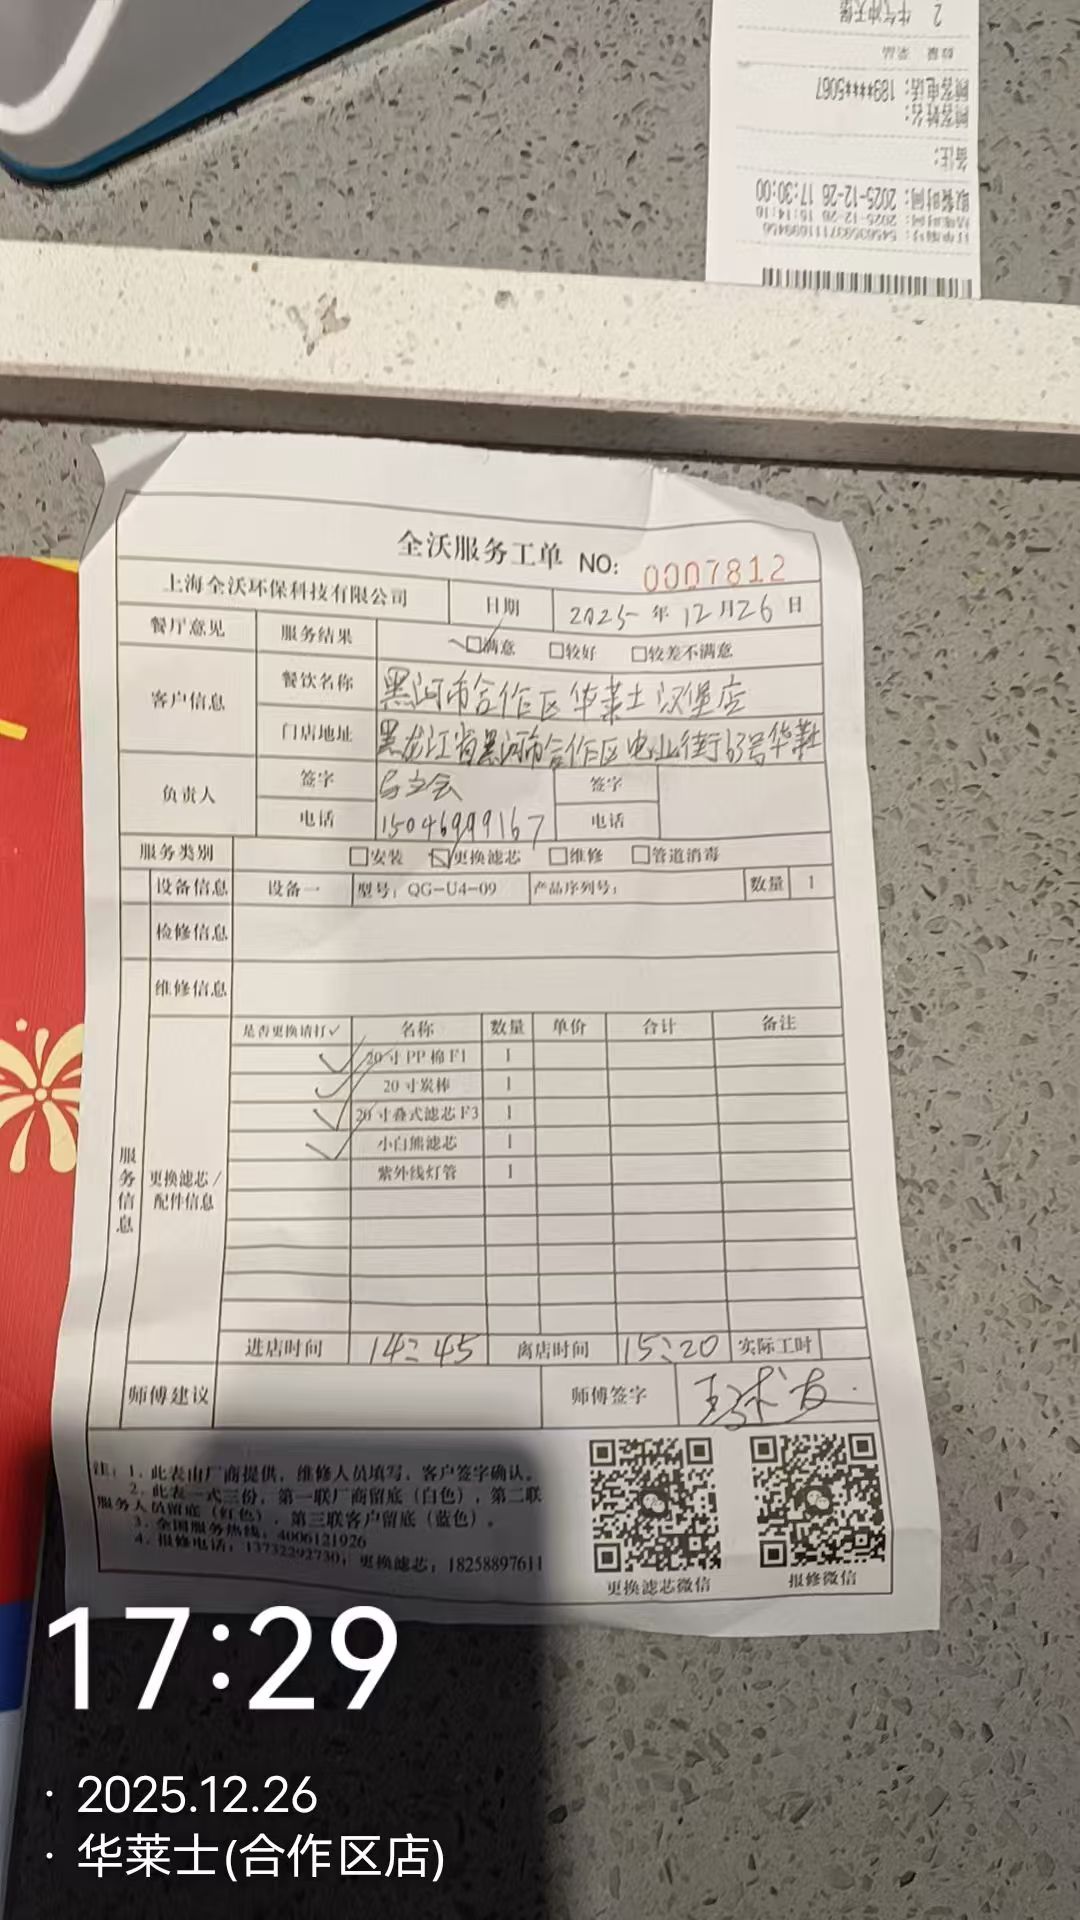 2 牛气冲天堡
数量 菜品
顾客电话：189****5067
顾客姓名：
备注：
取餐时间：2025-12-26 17:30:00
全沃服务工单 NO: 0007812
上海全沃环保科技有限公司 日期 2025年12月26日
餐厅意见 服务结果 满意 较好 较差不满意
客户信息 餐饮名称 黑河市合作区华莱士汉堡店
门店地址 黑龙江省黑河市合作区电业街63号华莱士
负责人 签字 签字
电话 15046999167 电话
服务类别 安装 更换滤芯 维修 管道消毒
设备信息 设备一 型号：QG-U4-09 产品序列号： 数量 1
检修信息
维修信息
服务信息
更换滤芯/配件信息
是否更换请打✓ 名称 数量 单价 合计 备注
✓ 20寸PP棉F1 1
✓ 20寸炭棒 1
✓ 20寸叠式滤芯F3 1
✓ 小白熊滤芯 1
紫外线灯管 1
进店时间 14:45 离店时间 15:20 实际工时
师傅建议 师傅签字
注：1. 此表由厂商提供，维修人员填写，客户签字确认。
2. 此表一式三份，第一联厂商留底（白色），第二联
服务人员留底（红色），第三联客户留底（蓝色）。
3. 全国服务热线：4006121926
4. 报修电话：13732292730；更换滤芯：18258897611
更换滤芯微信 报修微信
17:29
· 2025.12.26
· 华莱士(合作区店)